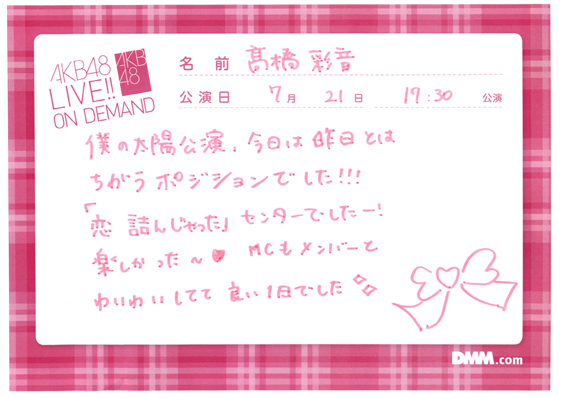 AKB48
LIVE!!
ON DEMAND
AKB
48
名 前 髙橋 彩音
公演日 7月 21日 17:30 公演
僕の太陽公演、今日は昨日とは
ちがうポジションでした!!!
「恋 詰んじゃった」センターでしたー!
楽しかった〜♥ MCもメンバーと
わいわいしてて 良い1日でした
DMM.com